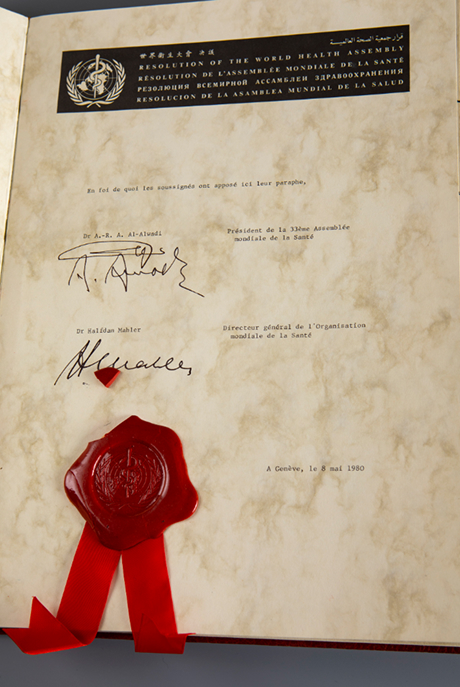 世界衛生大會 決議
قرار جمعية الصحة العالمية
RESOLUTION OF THE WORLD HEALTH ASSEMBLY
RÉSOLUTION DE L'ASSEMBLÉE MONDIALE DE LA SANTÉ
РЕЗОЛЮЦИЯ ВСЕМИРНОЙ АССАМБЛЕИ ЗДРАВООХРАНЕНИЯ
RESOLUCION DE LA ASAMBLEA MUNDIAL DE LA SALUD
En foi de quoi les soussignés ont apposé ici leur paraphe,
Dr A.-R. A. Al-Alwadi
Président de la 33ème Assemblée
mondiale de la Santé
Dr Halfdan Mahler
Directeur général de l'Organisation
mondiale de la Santé
A Genève, le 8 mai 1980